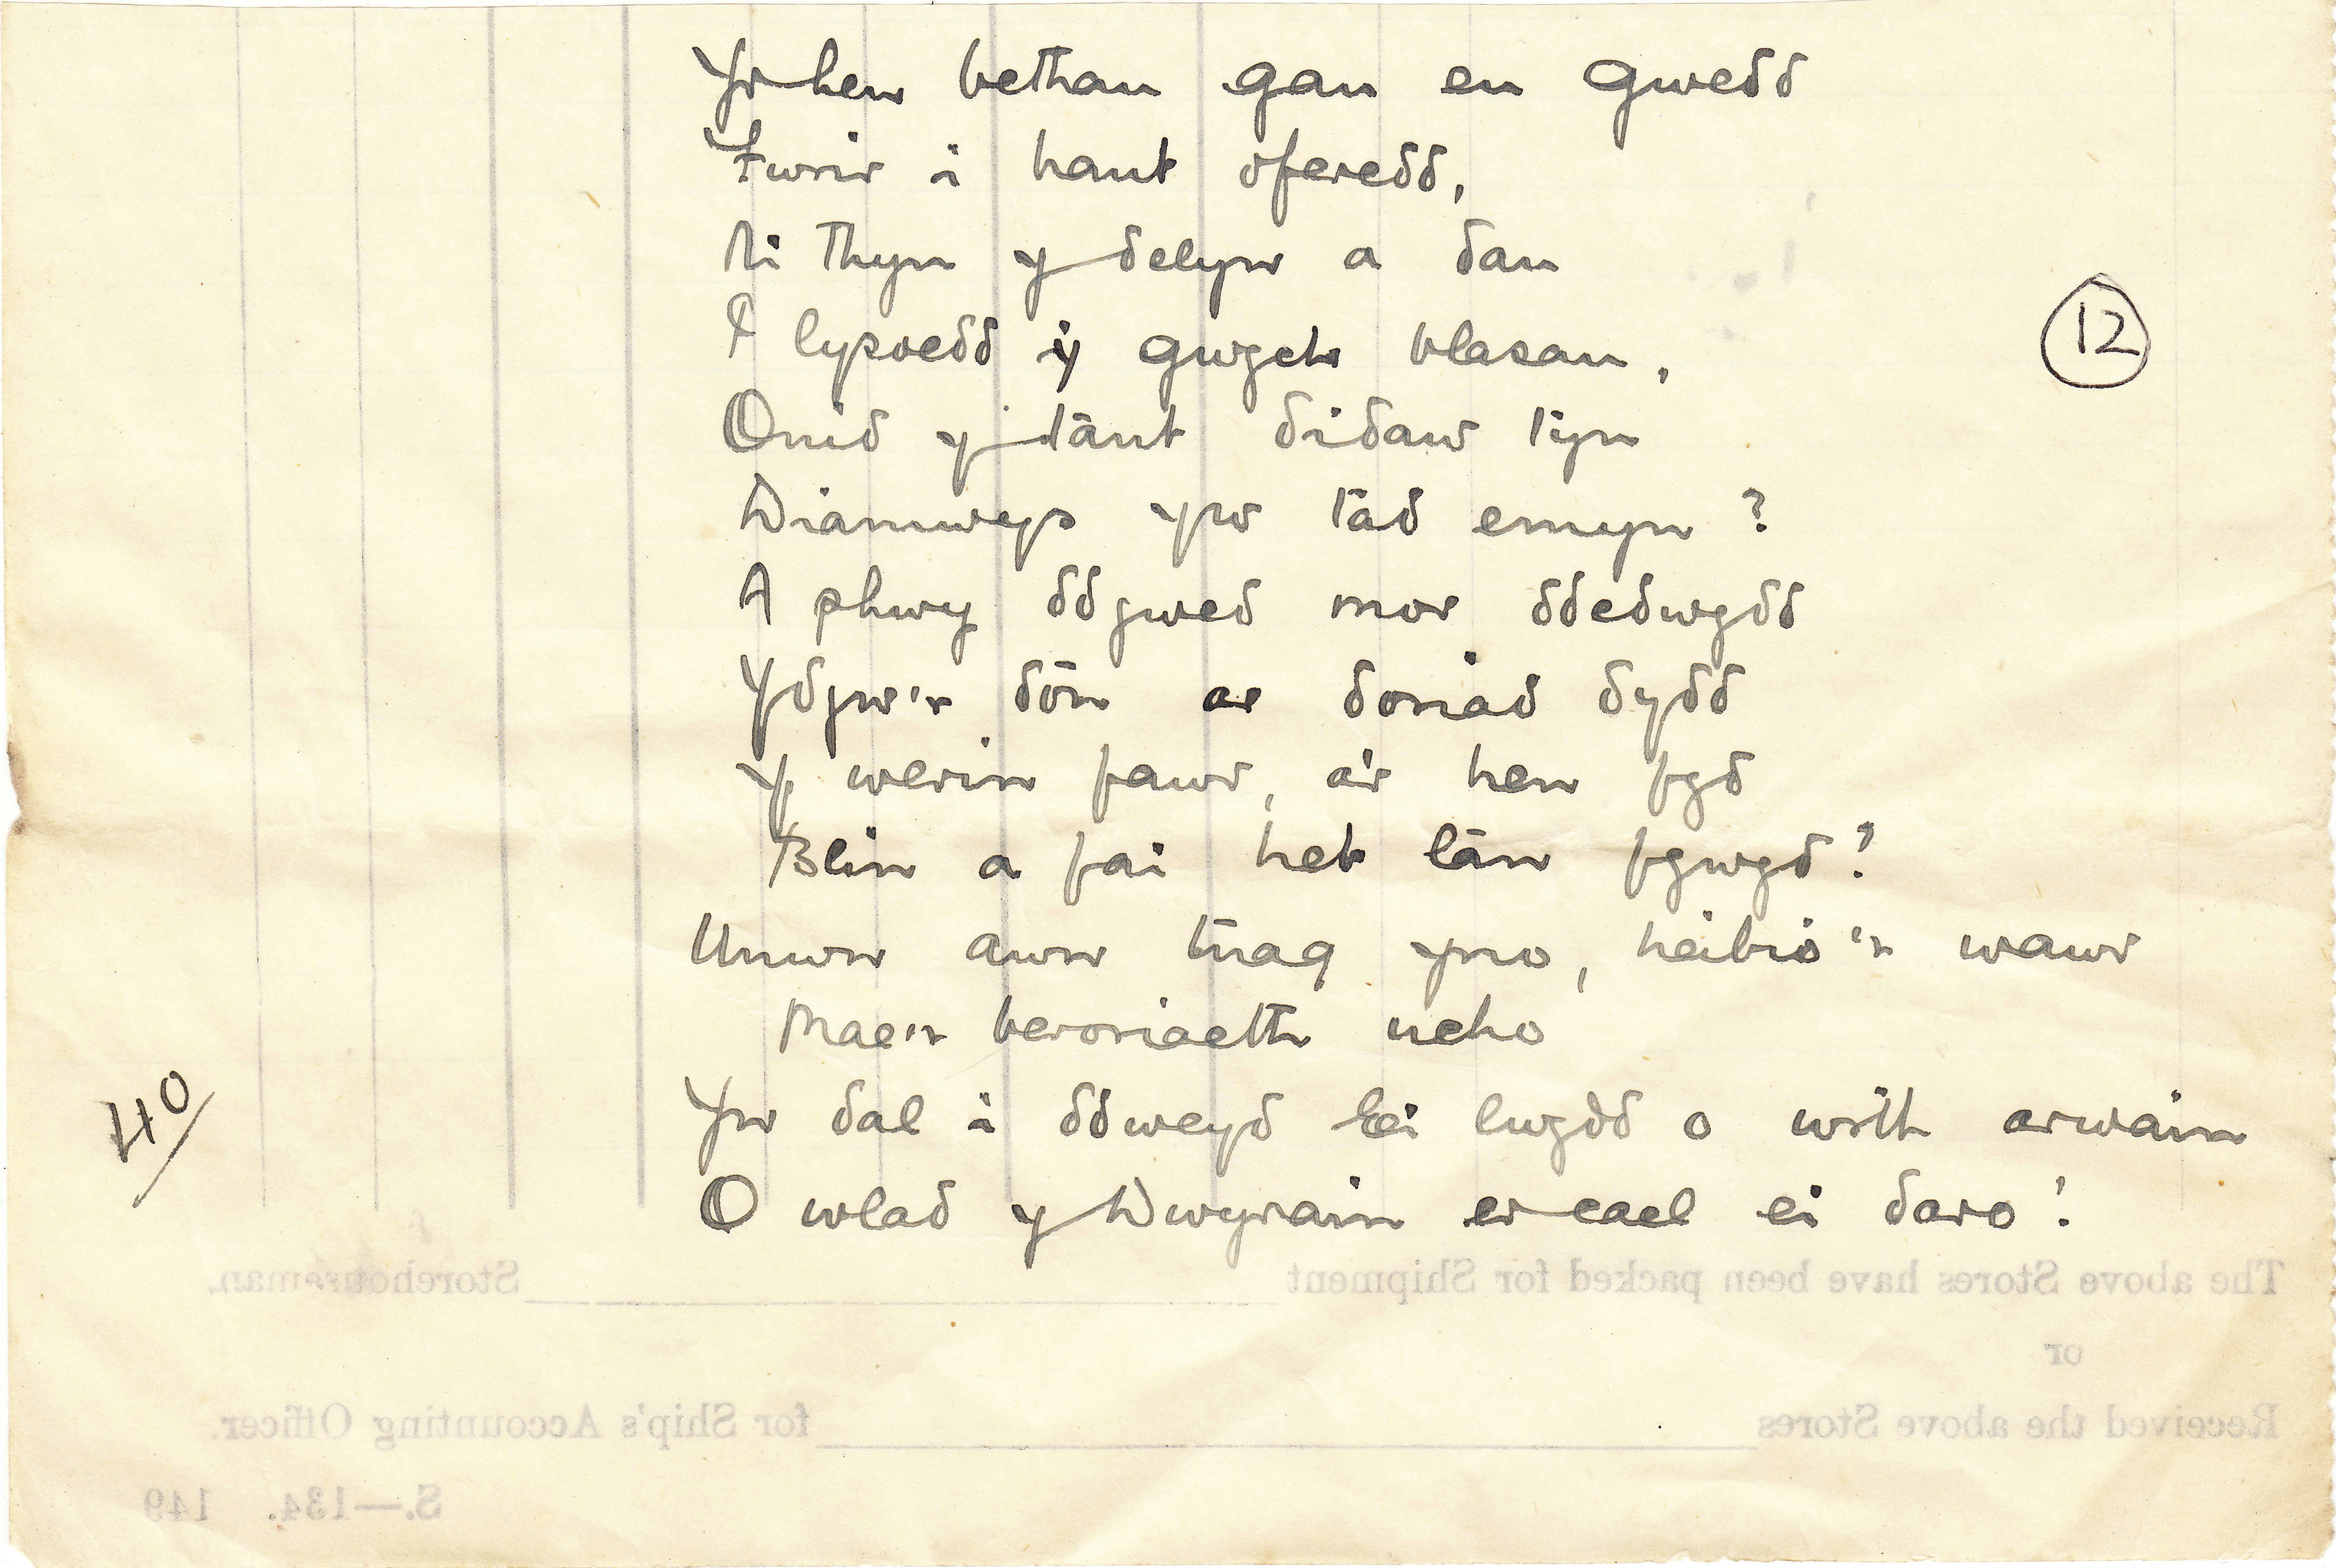 Yr hen bethau gan eu gwedd
Fwrir i hant oferedd,
Ni thyn y delyn a dau
I lysoedd y gwych blasau,
Onid y tànt didaw tyn
Diamwys yw tàd emyn?
A phwy ddywed mor ddedwydd
Ydyw'n dôn ar doriad dydd
Y werin fawr, a'r hen fyd
Blin a fai heb lân fywyd!
Unwn awn tuag yno, heibio'n wawr
Mae'n beroriaeth ucho
Yn dal i ddweyd Ei lwydd o wrth arwain
O wlad y Dwyrain er cael ei daro!
12
40
The above Stores have been packed for Shipment Storehouseman.
or
Received the above Stores for Ship's Accounting Officer.
S.—134. 149